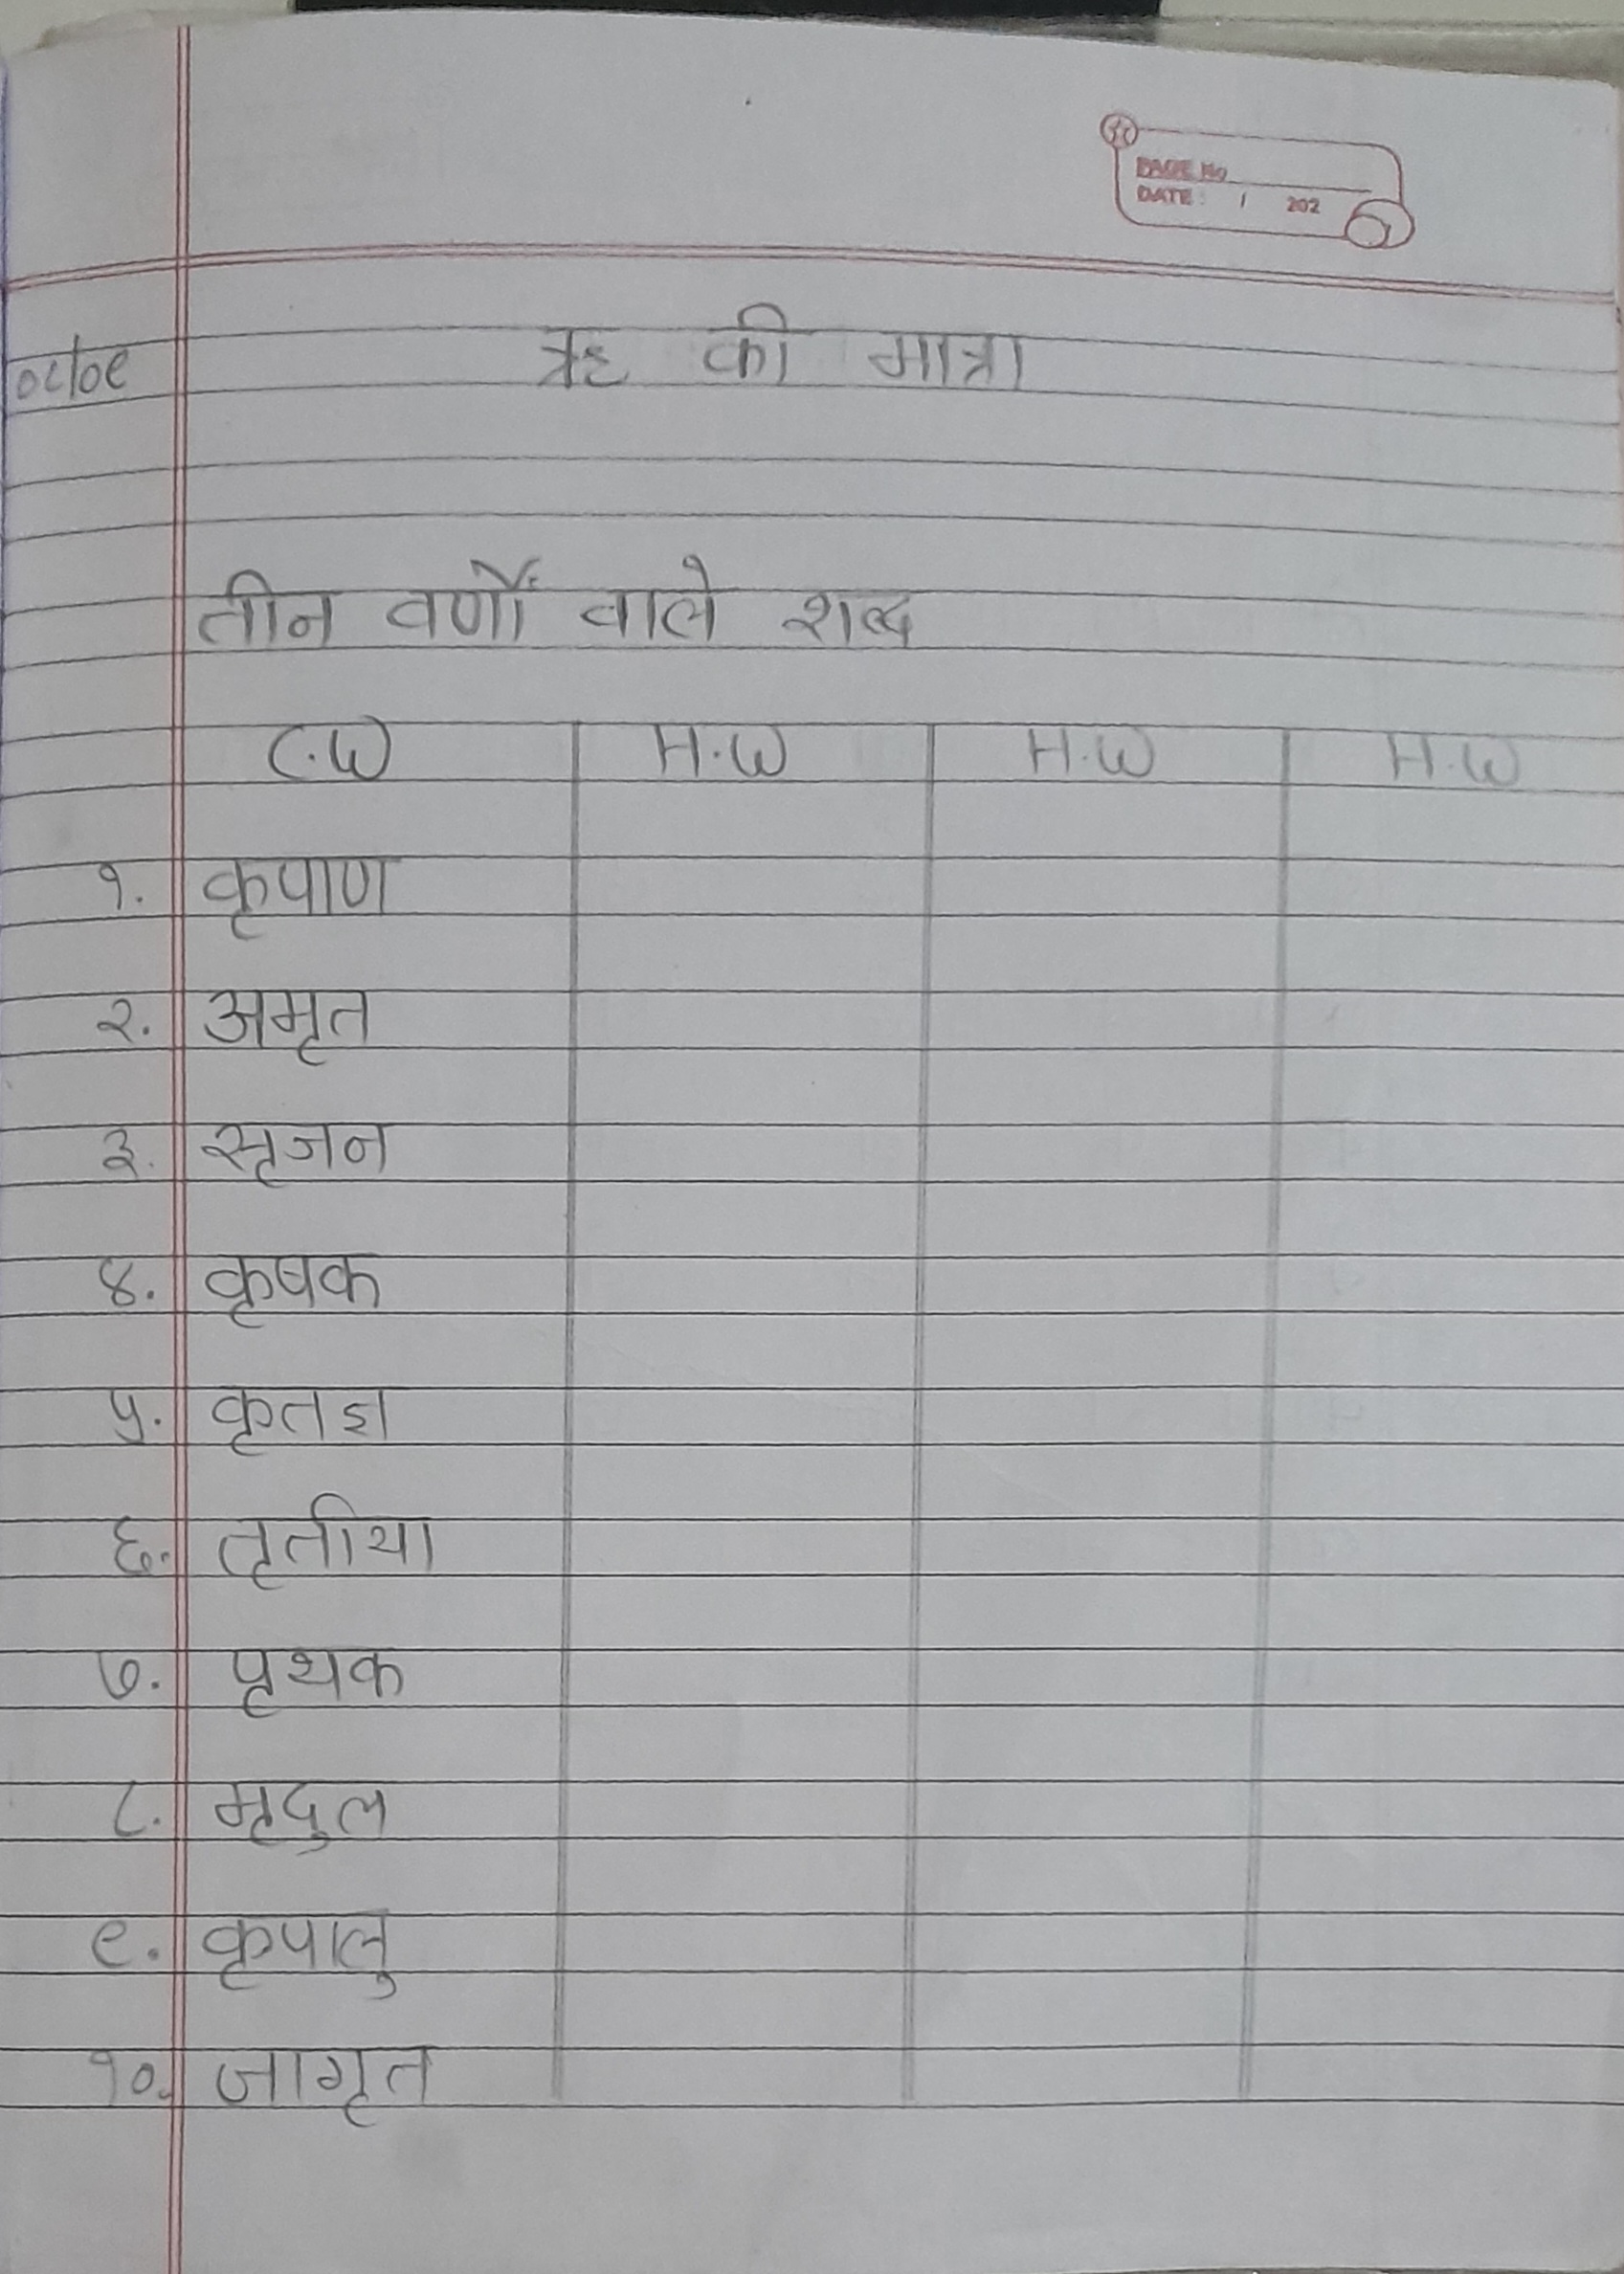 PAGE No
DATE: / 202
०८/०९ ऋ की मात्रा
तीन वर्णों वाले शब्द
C.W H.W H.W H.W
१. कृपाण
२. अमृत
३. सृजन
४. कृषक
५. कृतज्ञ
६. तृतीया
७. पृथक
८. मृदुल
९. कृपालु
१०. जागृत